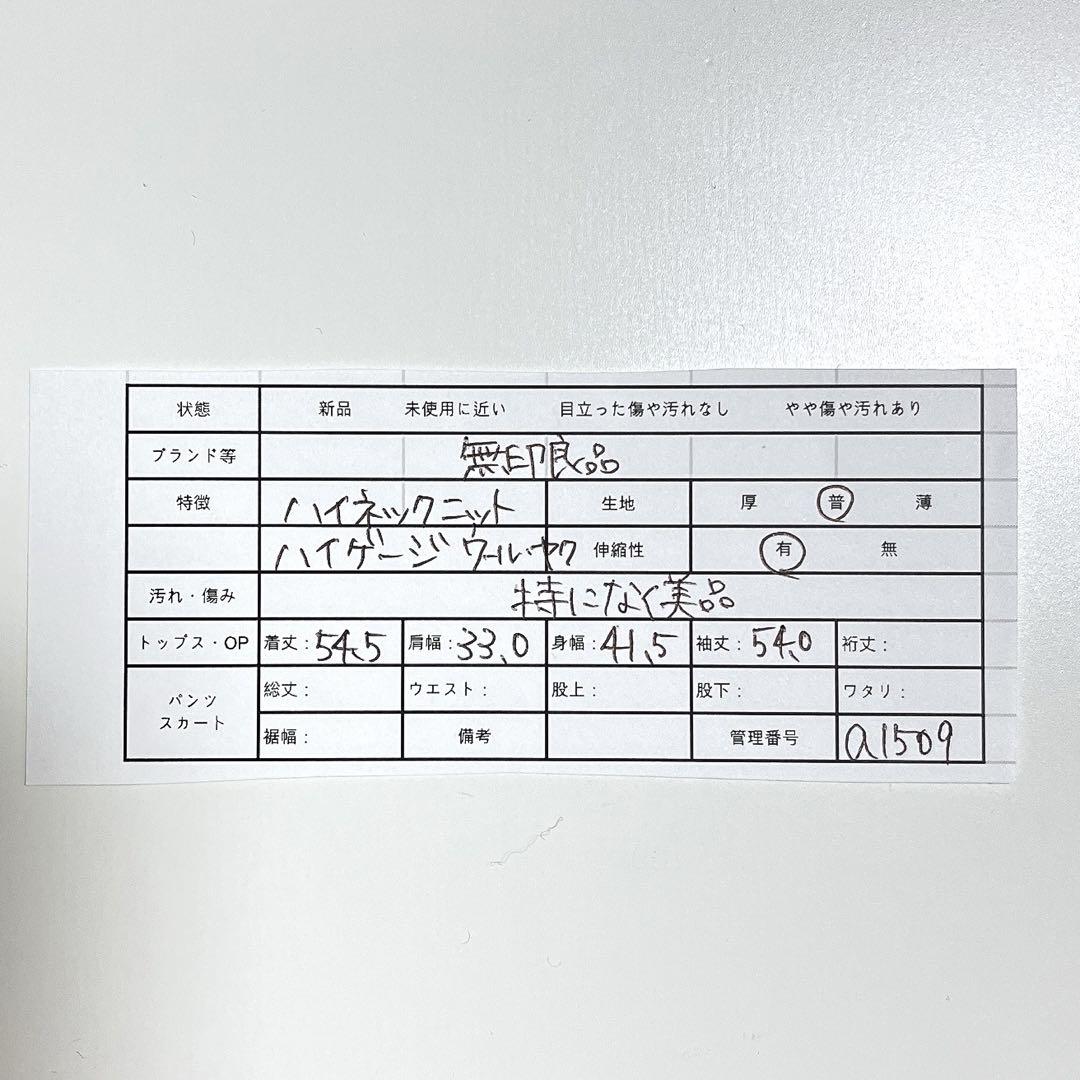 状態 新品 未使用に近い 目立った傷や汚れなし やや傷や汚れあり
ブランド等 無印良品
特徴 ハイネックニット 生地 厚 普 薄
ハイゲージ ウール・ヤク 伸縮性 有 無
汚れ・傷み 特になく美品
トップス・OP 着丈：54.5 肩幅：33.0 身幅：41.5 袖丈：54.0 裄丈：
パンツ スカート 総丈： ウエスト： 股上： 股下： ワタリ：
裾幅： 備考 管理番号 a1509